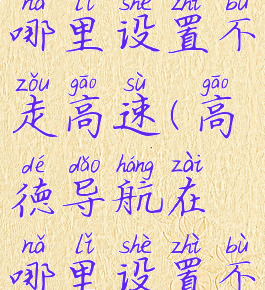 nǎ lǐ shè zhì bù
哪里设置不
zǒu gāo sù gāo
走高速(高
dé dǎo háng zài
德导航在
nǎ lǐ shè zhì bù
哪里设置不